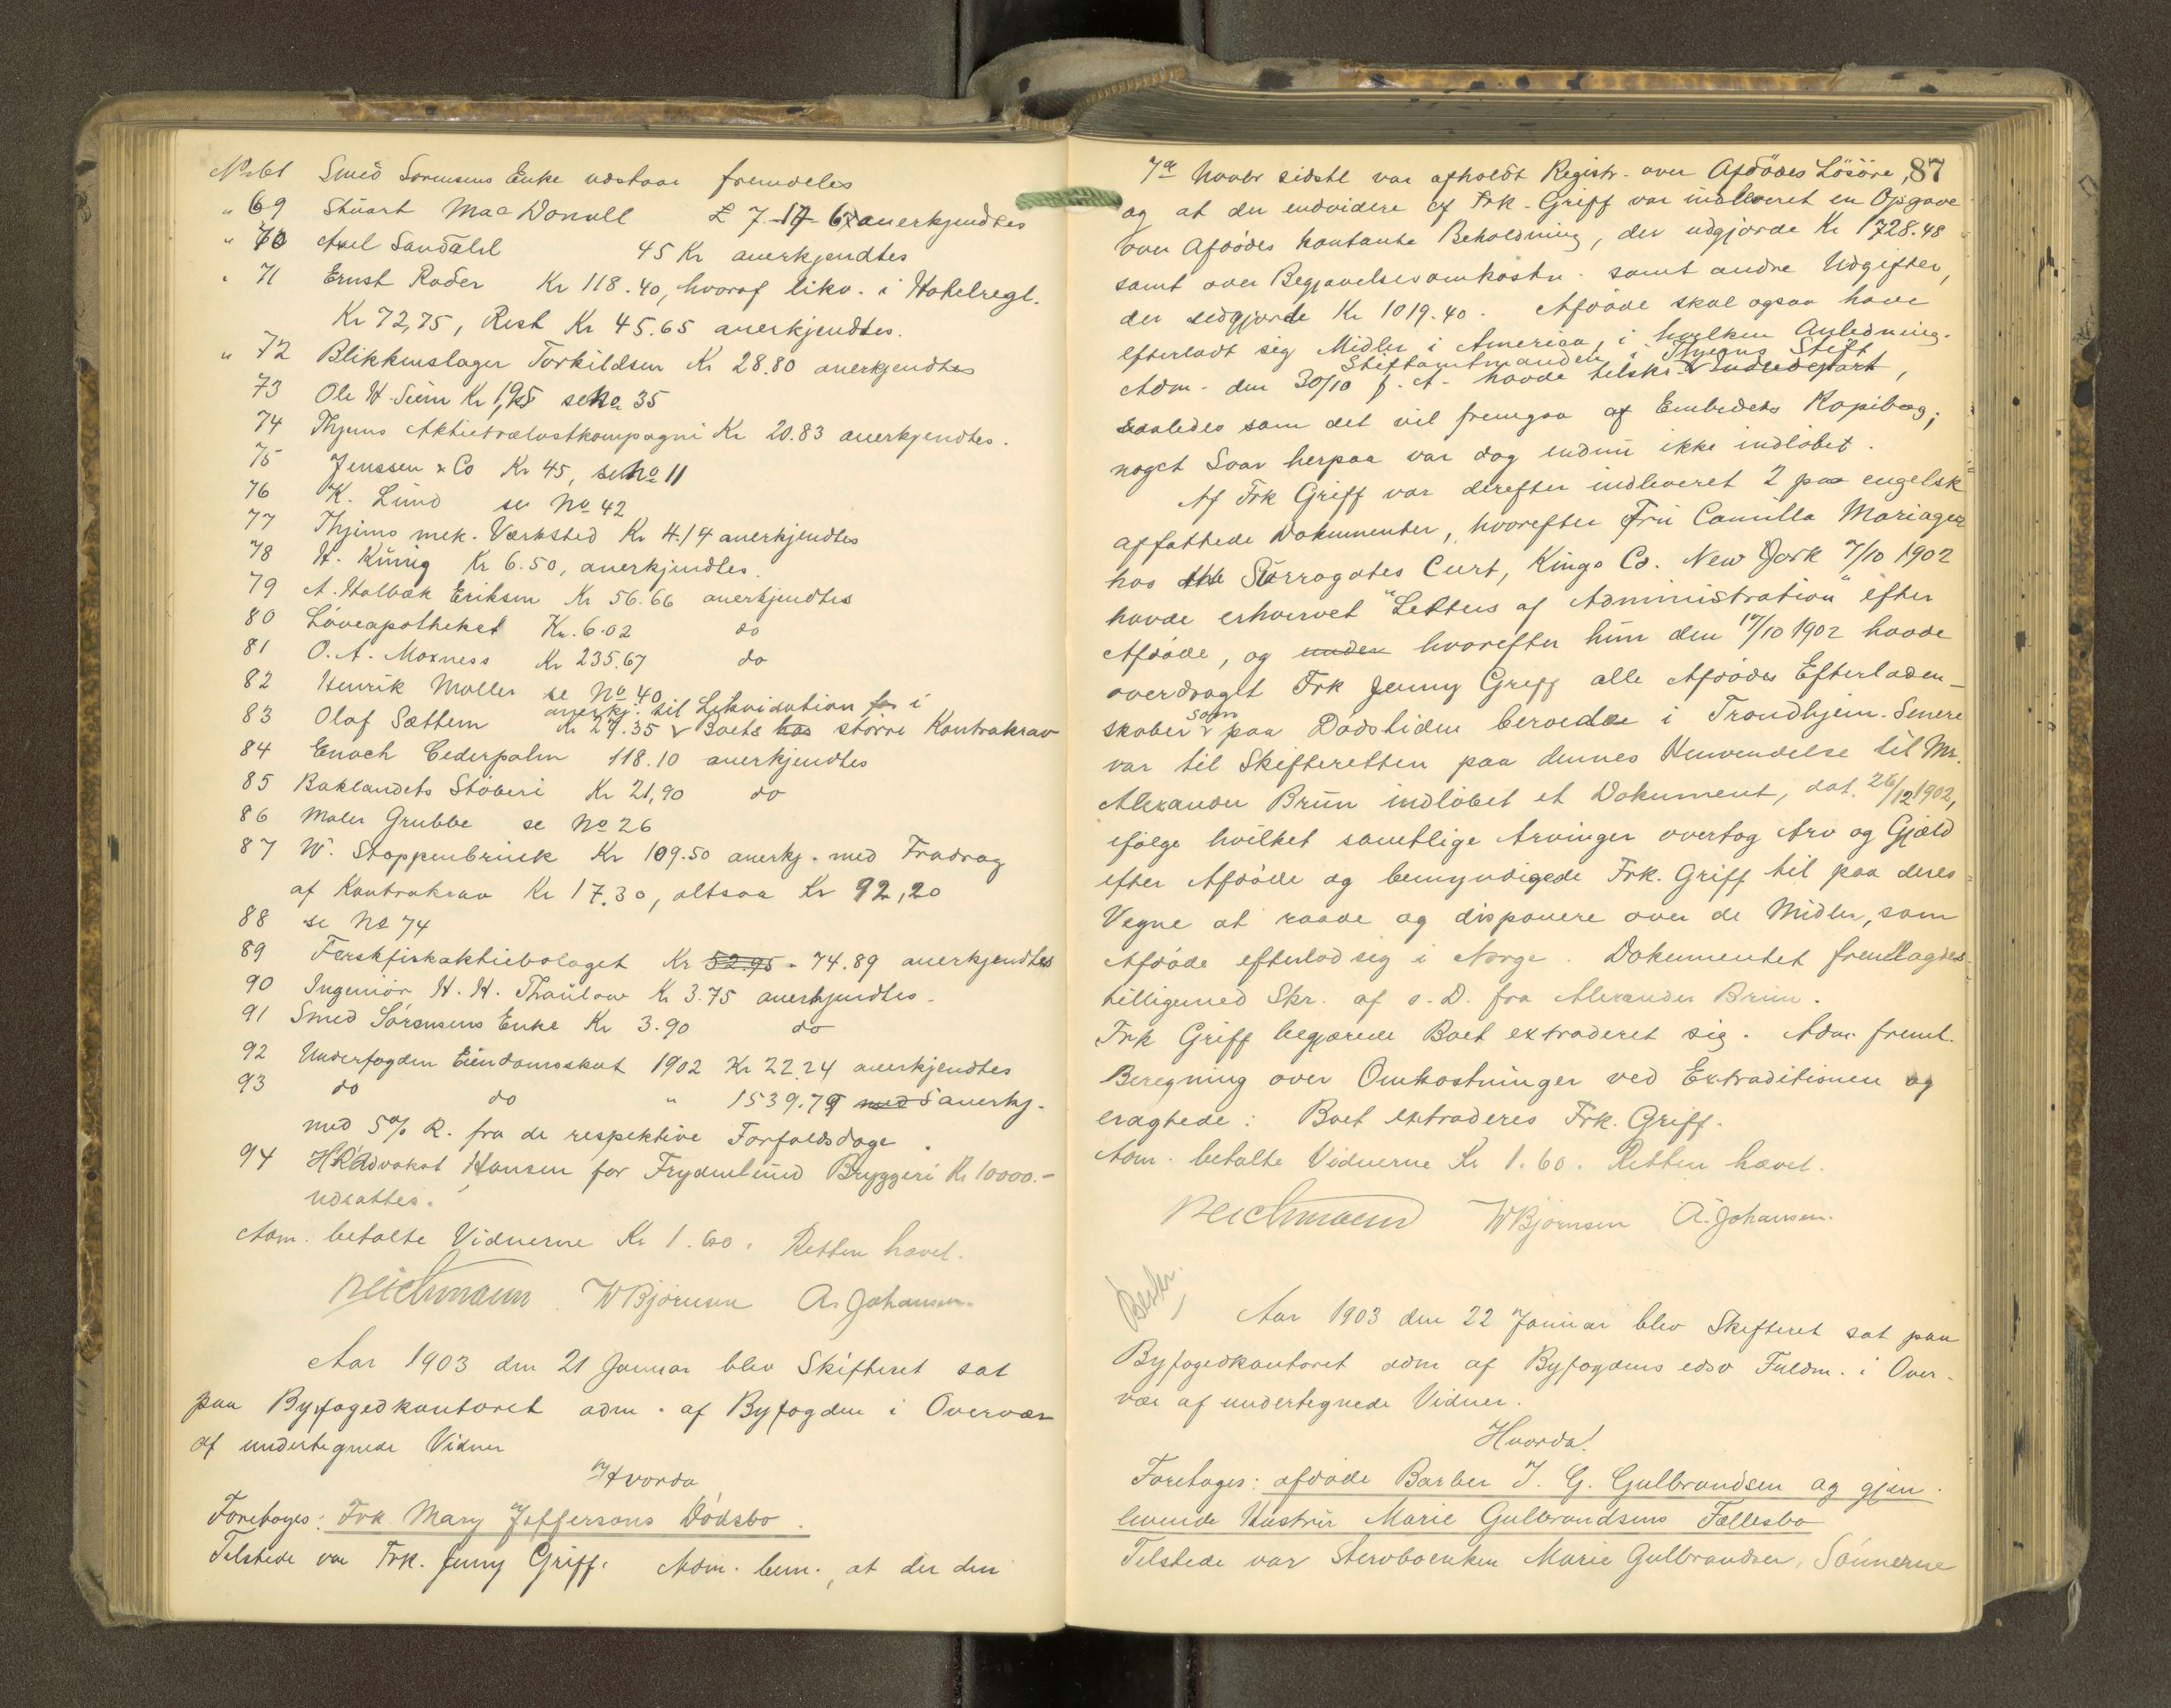 No 61 Smed Sørensens Enke udstaar fremdeles
" 69 Stuart Mac Donall £ 7-17-6 anerkjendtes
" 70 Axel Sandahl 45 Kr anerkjendtes
" 71 Ernst Roder Kr 118.40, hvoraf likv. i Hotelregl.
Kr 72,75, Rest Kr 45.65 anerkjendtes.
" 72 Blikkenslager Torkildsen Kr 28.80 anerkjendtes
73 Ole H. Siem Kr 1,95 se No 35
74 Thjems Aktietrælastkompagni Kr 20.83 anerkjendtes.
75 Jenssen & Co Kr 45, se No 11
76 K. Lund se No 42
77 Thjems mek. Værksted Kr 4.14 anerkjendtes
78 H. Künig Kr 6.50, anerkjendtes.
79 A. Holbæk Eriksen Kr 56.66 anerkjendtes
80 Løveapotheket Kr. 6.02 do
81 O. A. Moxness Kr 235.67 do
82 Henrik Møller se No 40
anerkj. til Likvidation for i
83 Olaf Sættem Kr 29.35 Boets hos større Kontrakrav
84 Enoch Cederpalm 118.10 anerkjendtes
85 Baklandets Støberi Kr 21,90 do
86 Maler Grubbe se No 26
87 W. Stoppenbrink Kr 109.50 anerkj. med Fradrag
af Kontrakrav Kr 17.30, altsaa Kr 92,20
88 se No 74
89 Ferskfiskaktiebolaget Kr 52.95 - 74.89 anerkjendtes
90 Ingeniør H. H. Thaulow Kr 3.75 anerkjendtes.
91 Smed Sørensens Enke Kr 3.90 do
92 Underfogden Eiendomsskat 1902 Kr 22.24 anerkjendtes
93 do do " 1539.79 med 5 anerkj.
med 5% R. fra de respektive Forfaldsdage.
94 H.R.Advokat Hansen for Frydenlund Bryggeri Kr 10000.-
udsattes.
Adm. betalte Vidnerne Kr 1.60. Retten hævet.
Reichmann W Bjørnsen A. Johansen.
Aar 1903 den 21 Januar blev Skifteret sat
paa Byfogedkontoret adm. af Byfogden i Overvær
af undertegnede Vidner
Hvorda
Foretoges: Frk. Mary Jeffersons Dødsbo.
Tilstede var Frk. Jenny Griff. Adm. bem., at der den
87
7de Novbr sidstl. var afholdt Registr. over Afdødes Løsøre,
og at der endvidere af Frk. Griff var indleveret en Opgave
over Afdødes kontante Beholdning, der udgjorde Kr 1728.48
samt over Begravelsesomkostn. samt andre Udgifter,
der udgjorde Kr 1019.40. Afdøde skal ogsaa have
efterladt sig Midler i America, i hvilken Anledning.
Stiftamtmanden i Thjems Stift
Adm. den 30/10 f. A. havde tilskr. Indredepart,
saaledes som det vil fremgaa af Embedets Kopibog;
noget Svar herpaa var dog endnu ikke indløbet.
Af Frk Griff var derefter indleveret 2 paa engelsk
affattede Dokumenter, hvorefter Fru Camilla Mariager
hos the Surrogates Curt, Kings Co. New York 7/10 1902
havde erhvervet "Letters of Administration" efter
Afdøde, og under hvorefter hun den 17/10 1902 havde
overdraget Frk Jenny Griff alle Afdødes Efterladen-
skaber som paa Dødstiden beroede i Trondhjem. Senere
var til Skifteretten paa dennes Henvendelse til Mr.
Alexander Brun indløbet et Dokument, dat. 26/12 1902,
ifølge hvilket samtlige Arvinger overtog Arv og Gjæld
efter Afdøde og bemyndigede Frk. Griff til paa deres
Vegne at raade og disponere over de Midler, som
Afdøde efterlod sig i Norge. Dokumentet fremlagdes
tilligemed Skr. af s. D. fra Alexander Brun.
Frk Griff begjærede Boet extraderet sig. Adm. freml.
Beregning over Omkostninger ved Extraditionen og
eragtede: Boet extraderes Frk. Griff.
Adm. betalte Vidnerne Kr 1.60. Retten hævet.
Reichmann W Bjørnsen A. Johansen.
Beskr.
Aar 1903 den 22 Januar blev Skifteret sat paa
Byfogedkontoret adm af Byfogdens edsv Fuldm. i Over-
vær af undertegnede Vidner.
Hvorda!
Foretoges: afdøde Barber J. G. Gulbrandsen og gjen-
levende Hustru Marie Gulbrandsens Fællesbo
Tilstede var Stervboenken Marie Gulbrandsen, Sønnerne